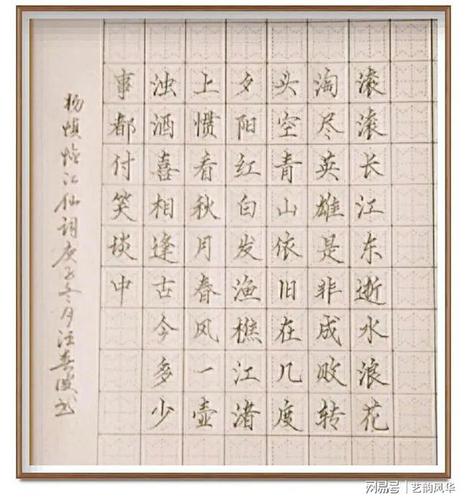 滚滚长江东逝水浪花
淘尽英雄是非成败转
头空青山依旧在几度
夕阳红白发渔樵江渚
上惯看秋月春风一壶
浊酒喜相逢古今多少
事都付笑谈中
杨慎临江仙词庚子冬月汪春书
网易号 | 艺韵风华